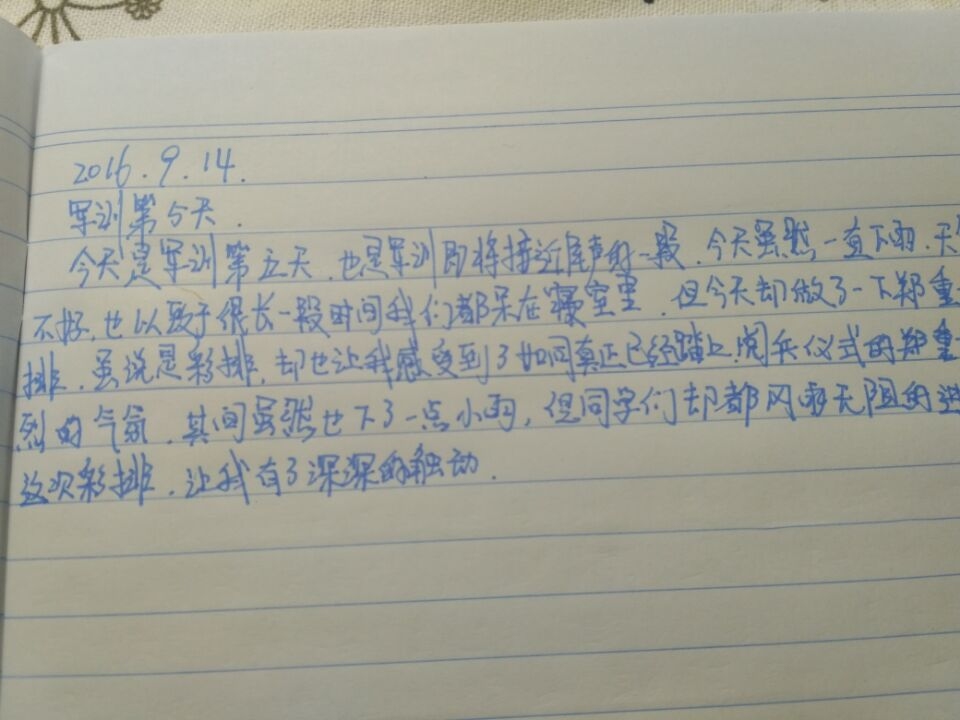 2016.9.14.
军训第5天.
今天是军训第五天,也是军训即将接近尾声的一段.今天虽然一直下雨,天
不好,也以致于很长一段时间我们都呆在寝室里,但今天却做了一下郑重
排,虽说是彩排,却也让我感受到了如同真正已经踏上阅兵仪式的郑重
烈的气氛,其间虽然也下了一点小雨,但同学们却都风雨无阻的进
这次彩排,让我有了深深的触动.